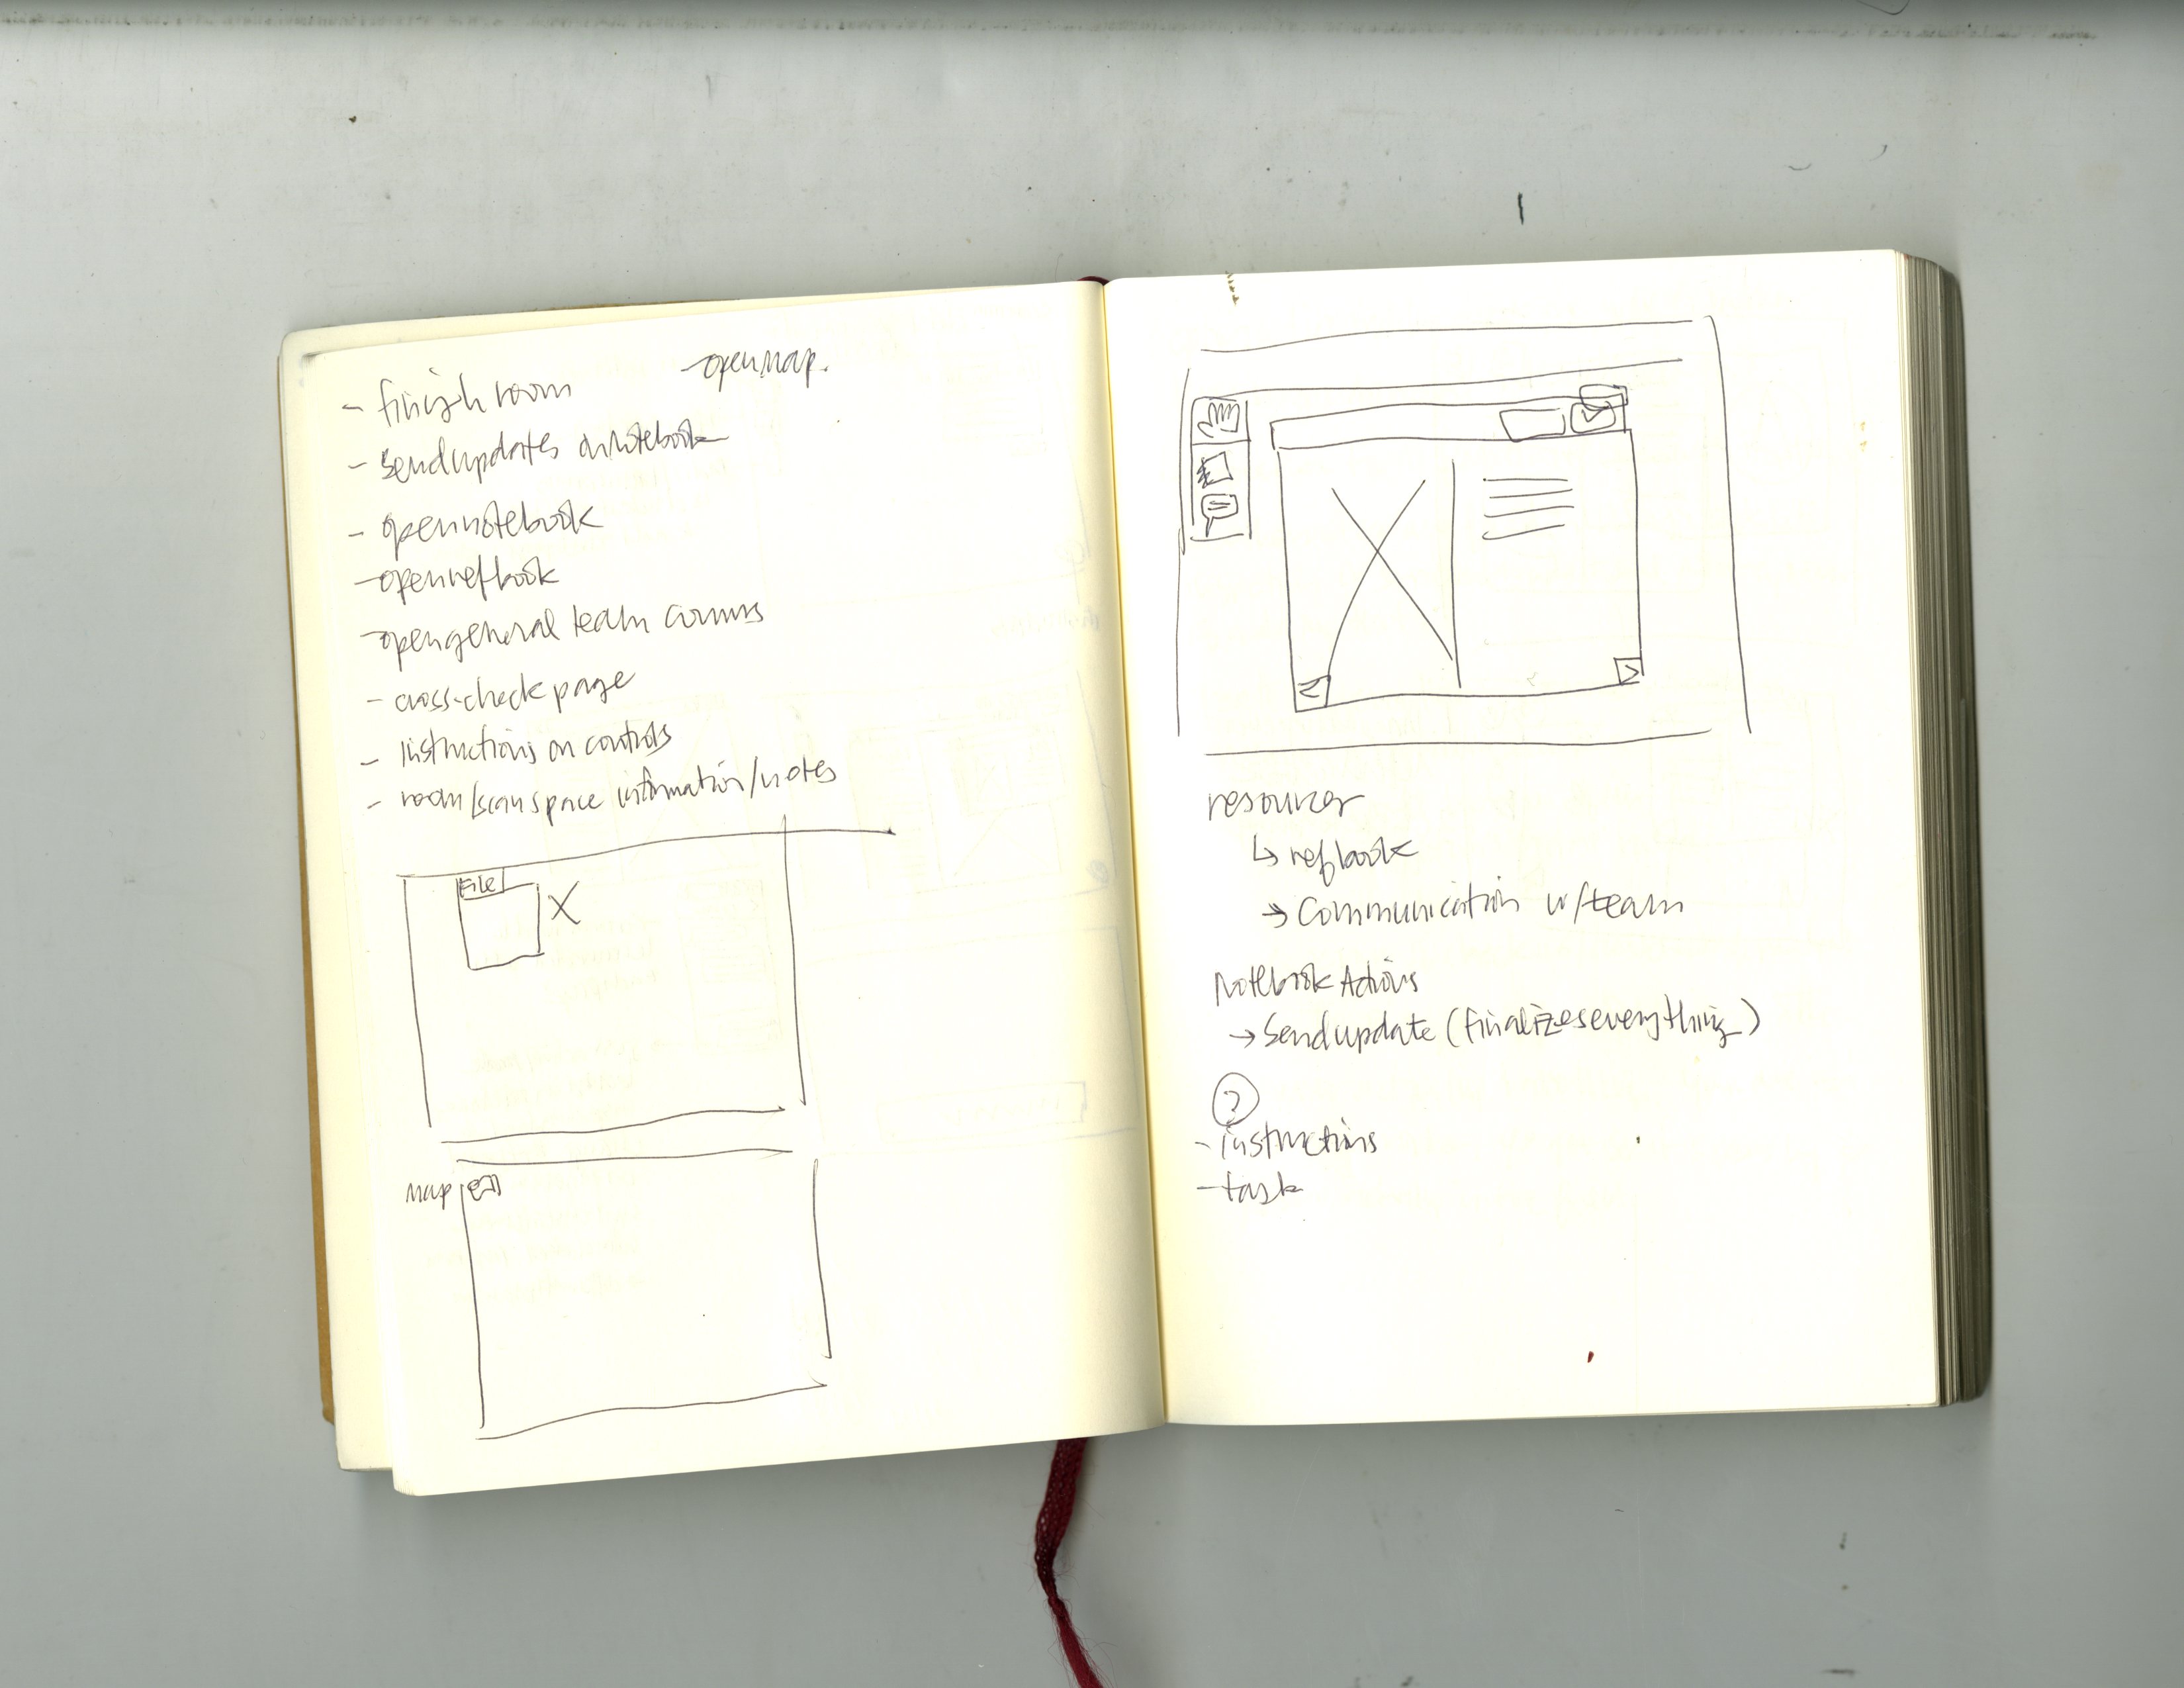 - finish room
- open map.
- send updates on notebook
- open notebook
- open refbook
- open general team comms
- cross-check page
- instructions on controls
- room/scan space information/notes
File
X
Map
resources
↳ refbook
→ Communication w/team
Notebook Actions
→ Send update (finalizes everything)
?
- instructions
- task